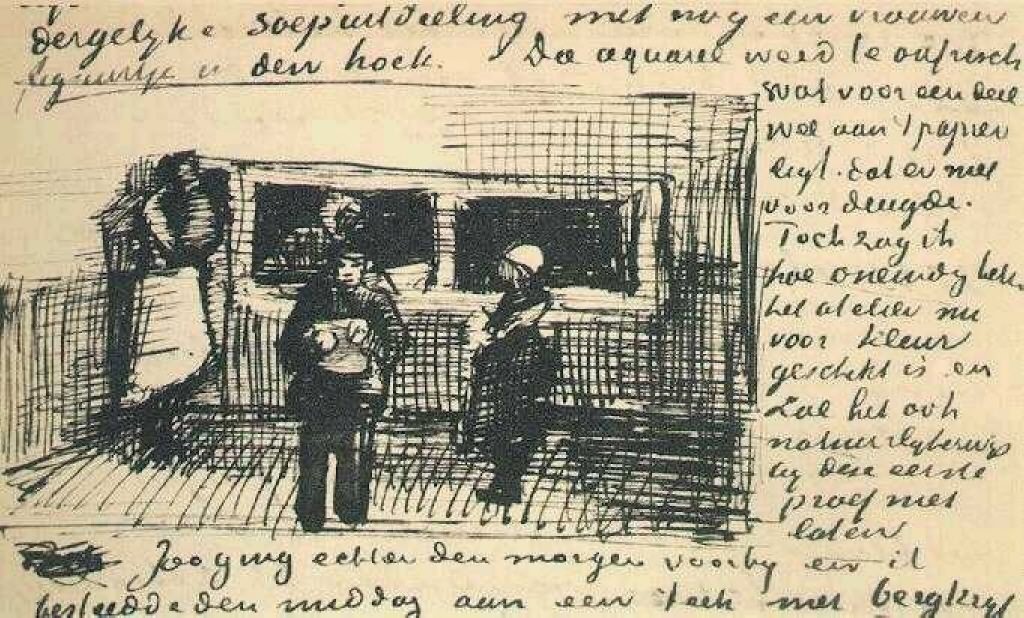 dergelyke soepuitdeeling met nog een vrouwen
figuurtje in den hoek. De aquarel werd te onfrisch
wat voor een deel
wel aan 't papier
ligt. dat er niet
voor deugde.
Toch zag ik
hoe oneindig
het atelier nu
voor kleur
geschikt is en
zal het ook
natuurlykerwys
by deze eerste
proef niet
laten
Zoo ging echter den morgen voorby en ik
besteedde den middag aan een teek met bergkryt